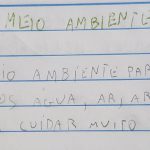 MEIO AMBIENTE
IO AMBIENTE PAR
OS AGUA, AR, AR
CUIDAR MUITO